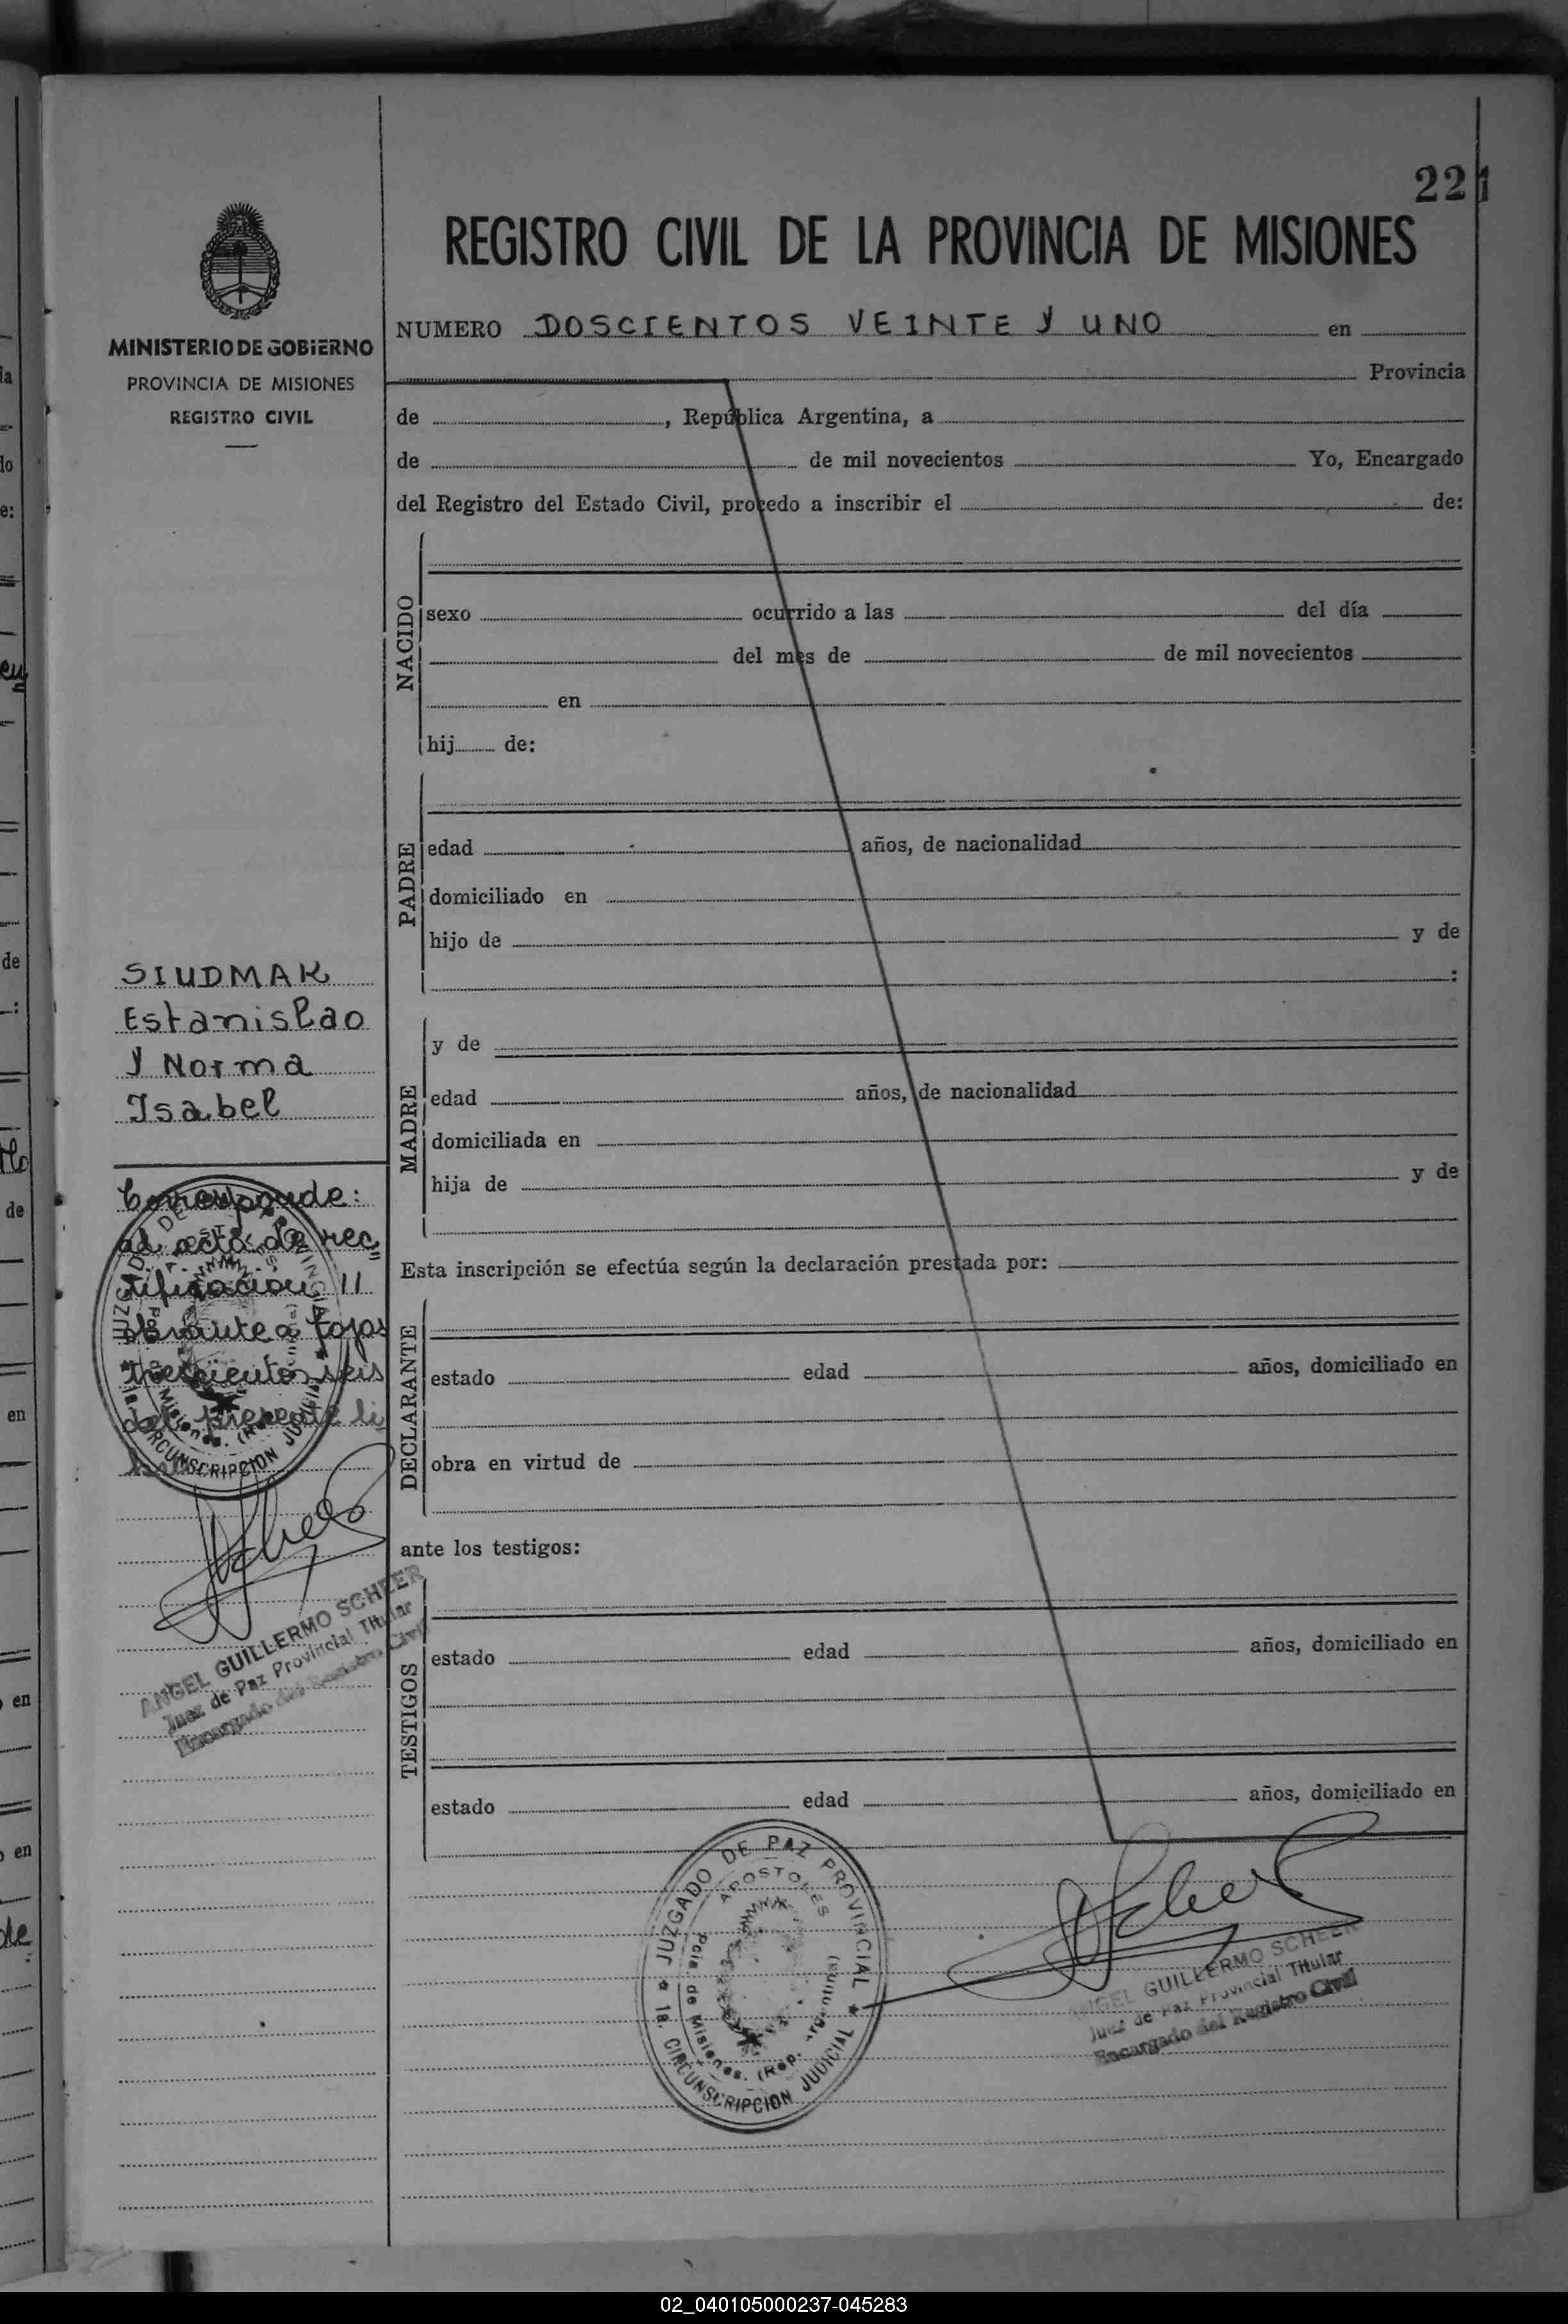 221
REGISTRO CIVIL DE LA PROVINCIA DE MISIONES
MINISTERIO DE GOBIERNO
PROVINCIA DE MISIONES
REGISTRO CIVIL
NUMERO DOSCIENTOS VEINTE Y UNO en
Provincia
de , República Argentina, a
de de mil novecientos Yo, Encargado
del Registro del Estado Civil, procedo a inscribir el de:
NACIDO
sexo ocurrido a las del día
del mes de de mil novecientos
en
hij de:
PADRE
edad años, de nacionalidad
domiciliado en
hijo de y de
:
MADRE
y de
edad años, de nacionalidad
domiciliada en
hija de y de
Esta inscripción se efectúa según la declaración prestada por:
DECLARANTE
estado edad años, domiciliado en
obra en virtud de
ante los testigos:
TESTIGOS
estado edad años, domiciliado en
estado edad años, domiciliado en
SIUDMAK
Estanislao
y Norma
Isabel
Corresponde:
al acta de rec
tificacion 11
obrante a fojas
trescientos seis
del presente li
ANGEL GUILLERMO SCHEER
Juez de Paz Provincial Titular
Encargado del Registro Civil
JUZGADO DE PAZ PROVINCIAL
APOSTOLES
Pcia. de Misiones. (Rep. Argentina)
1a. CIRCUNSCRIPCION JUDICIAL
ANGEL GUILLERMO SCHEER
Juez de Paz Provincial Titular
Encargado del Registro Civil
02_040105000237-045283